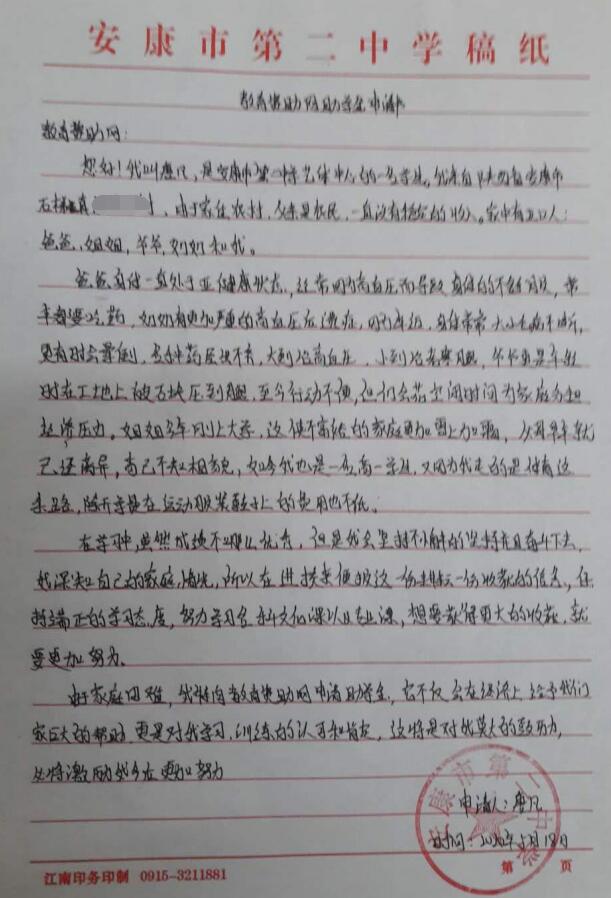 安康市第二中学稿纸
教育资助网助学金申请书
教育资助网：
您好！我叫唐凡，是安康市第二中学艺体中心的一名学生。我来自陕西省安康市
村，由于家住农村，父亲是农民，一直没有稳定的收入。家中有五口人：
爸爸，姐姐，爷爷，奶奶和我。
爸爸身体一直处于亚健康状态，经常因为高血压而导致身体的不舒服，常
年都要吃药，奶奶有更加严重的高血压后遗症，因为年迈，身体常常大小毛病不断，
更有时会晕倒，各种药层出不穷，大到治高血压，小到治老寒腿，爷爷更是年轻
时在工地上被石块压到腿，至今行动不便，但仍会花空闲时间为家庭分担
经济压力。姐姐多年同上大学，这使不富裕的家庭更加雪上加霜，父母早年就
已经离异，而已不知相貌，如今我也是一名高一学生，又因为我走的是体育这
条路，除开学费在运动服装鞋子上的费用也不低。
在学习中，虽然成绩不那么优秀，但是我会坚持不懈的坚持并且奋斗下去，
我深知自己的家庭情况，所以在进校来便抱这一份耕耘一份收获的信念，保
持端正的学习态度，努力学习各科文化课以及专业课，想要获得更大的收获，就
要更加努力。
由于家庭困难，我特向教育资助网申请助学金，它不仅会在经济上给予我们
家巨大的帮助，更是对我学习、训练的认可和肯定，这将是对我莫大的鼓励，
必将激励我今在更加努力
申请人：唐凡
时间：2020年5月18日
第 页
江南印务印制 0915-3211881